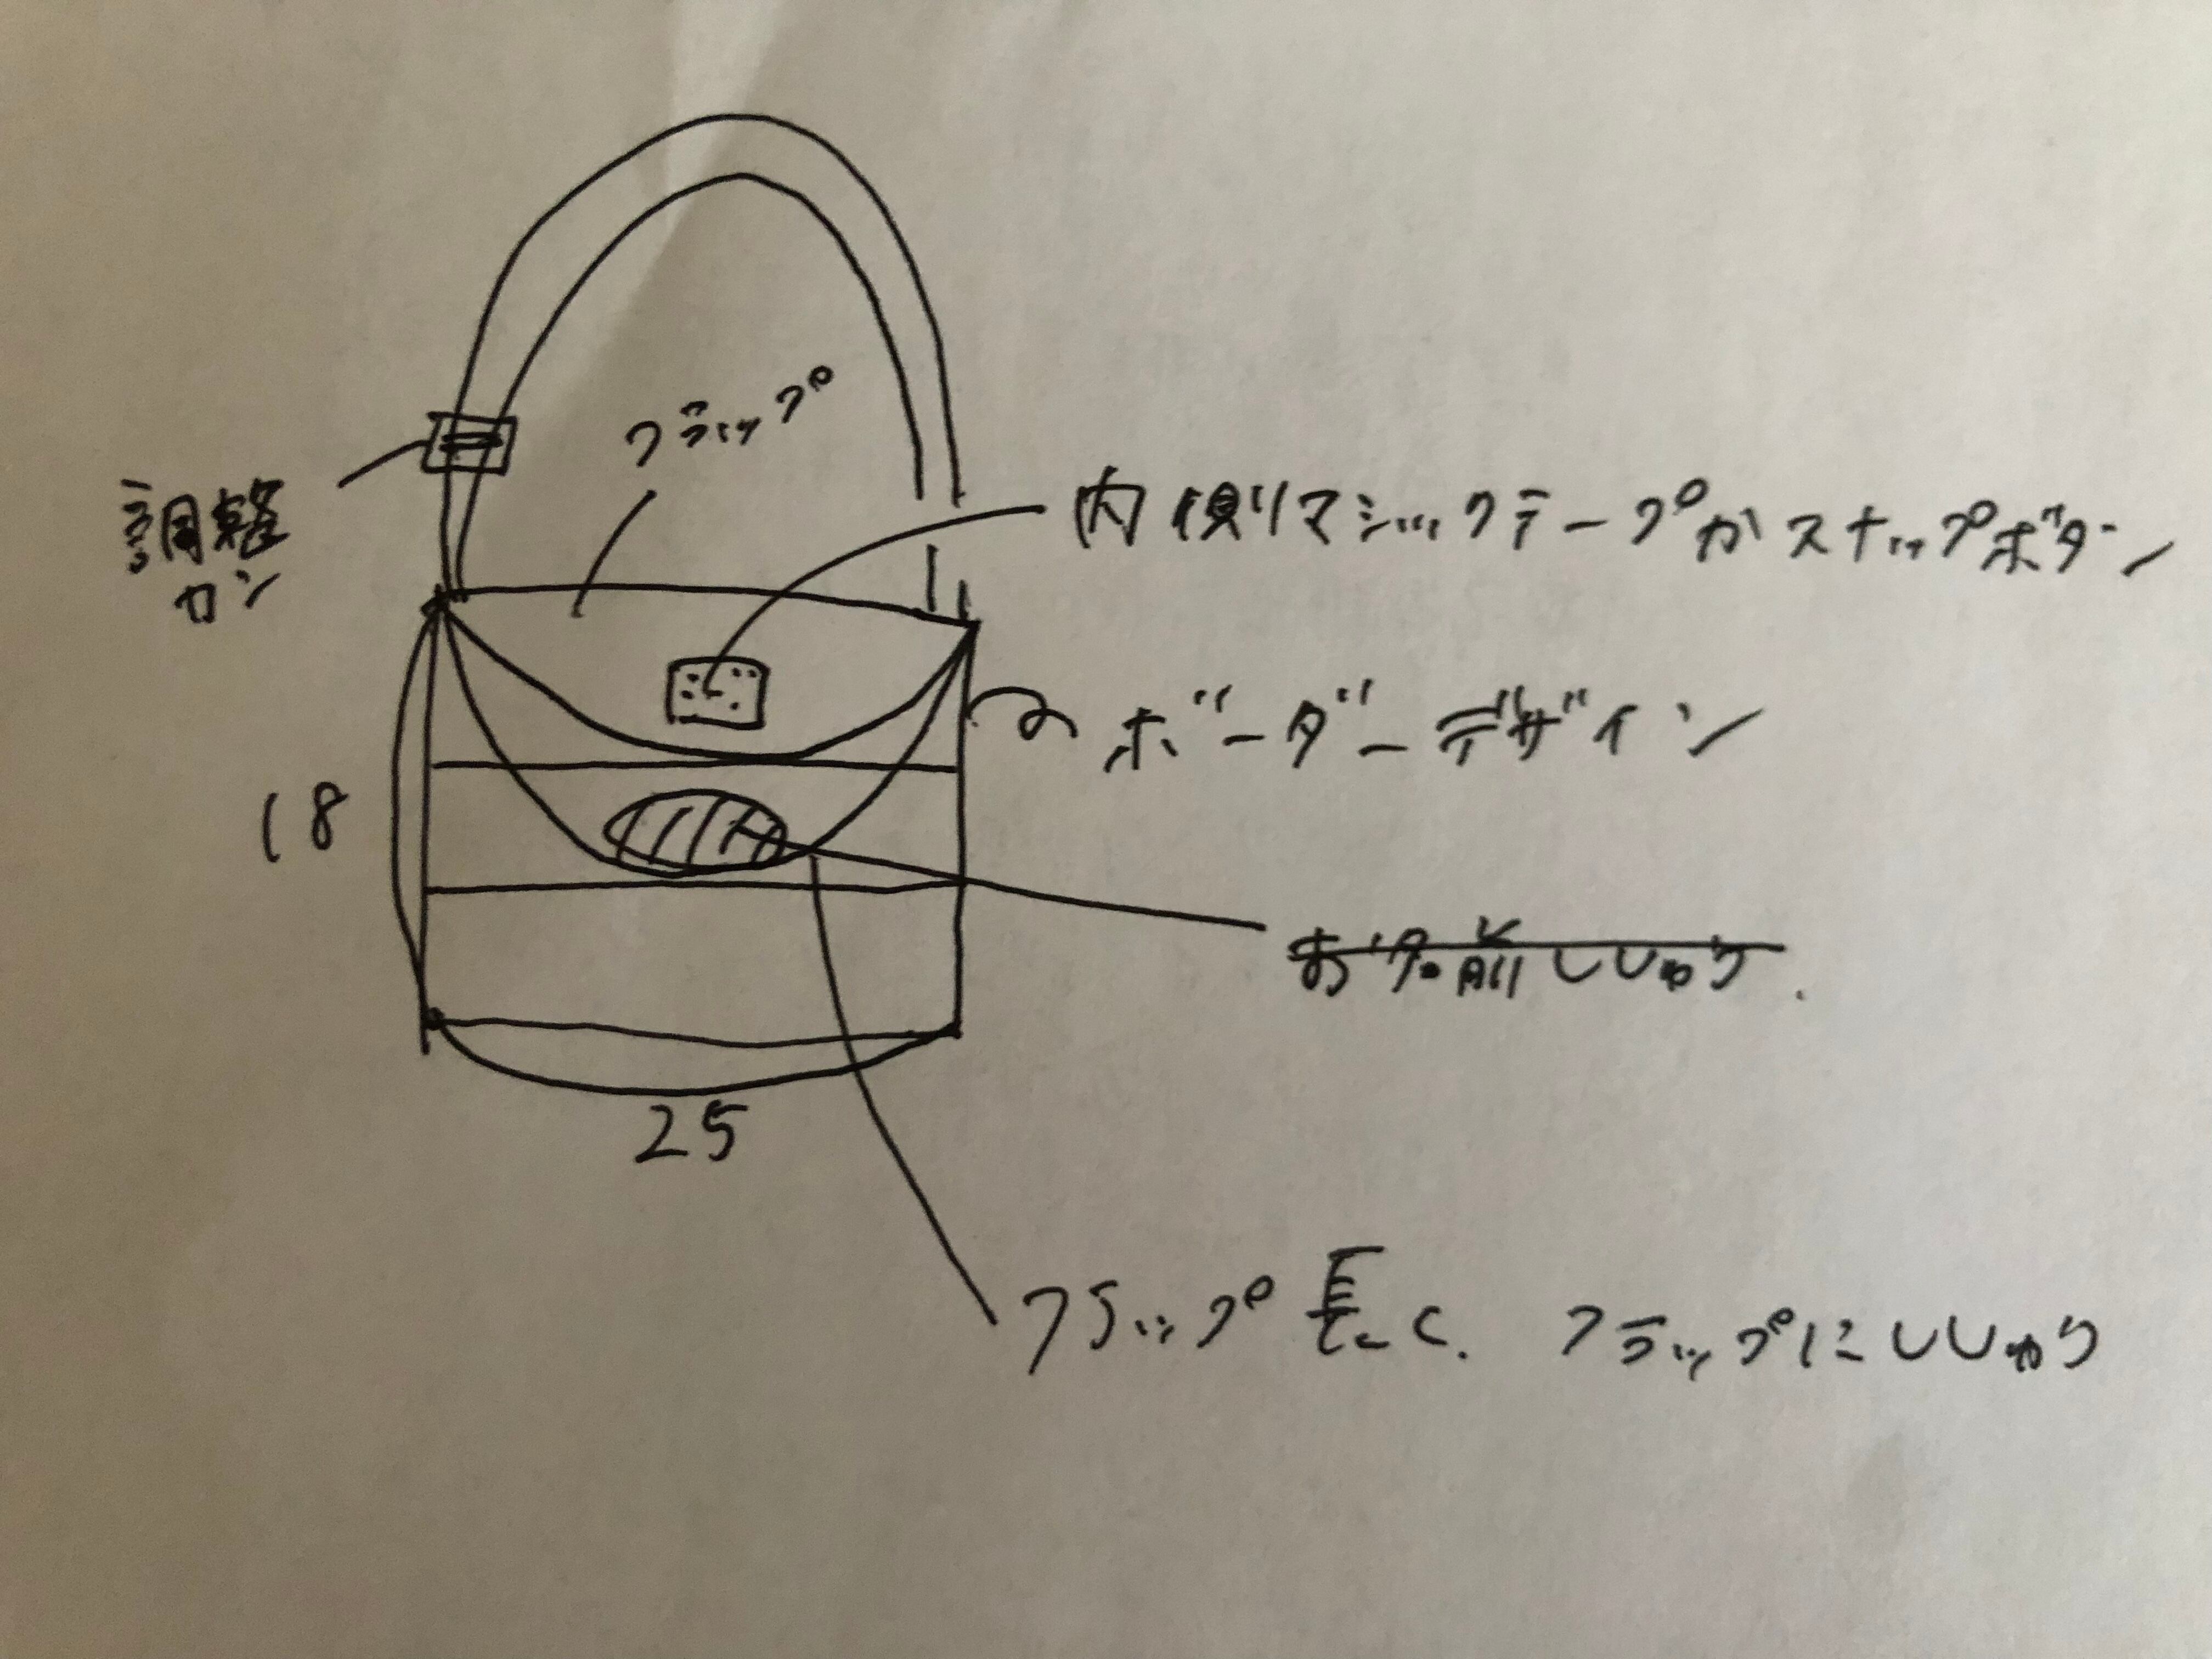 フラップ
調整
カン
内側マジックテープかスナップボタン
ボーダーデザイン
18
お名前ししゅう.
25
フラップ長く. フラップにししゅう